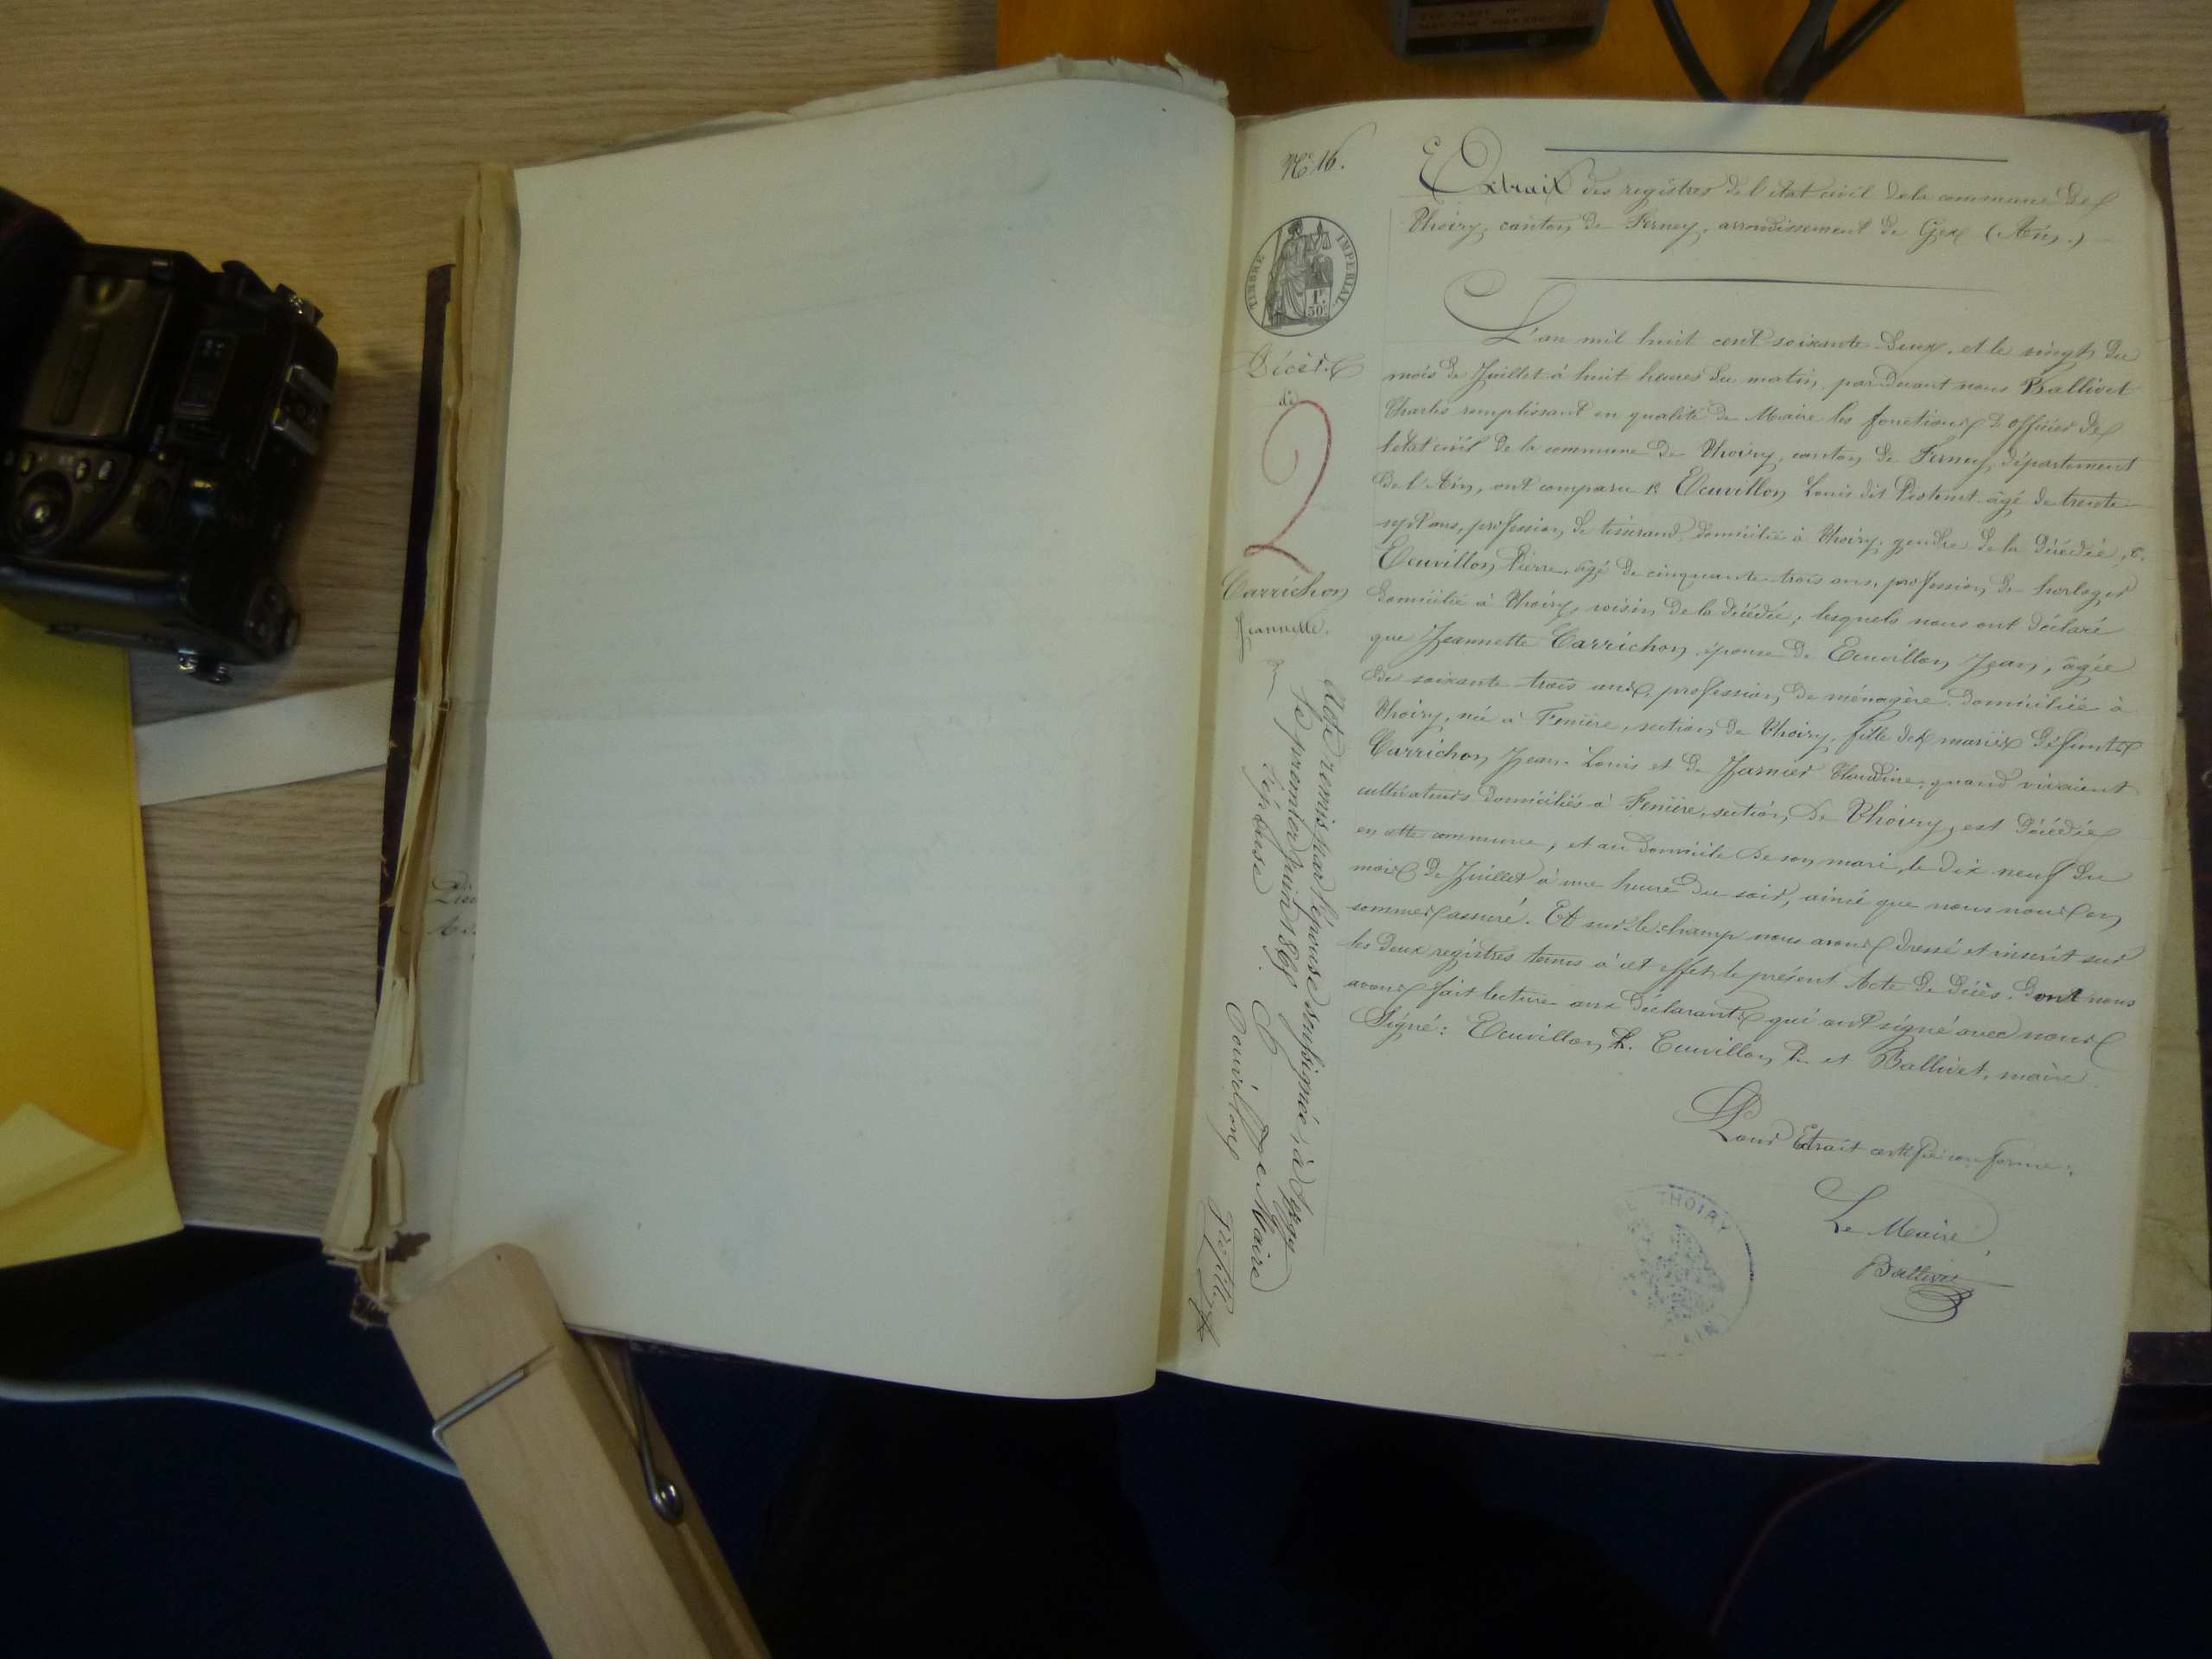 No 16.
Extrait des registres de l'état civil de la commune de
Thoiry, canton de Ferney, arrondissement de Gex (Ain.)
TIMBRE IMPERIAL
1F.
50c
Décès
de
2
Carrichon
Jeannette.
L'an mil huit cent soixante deux, et le vingt du
mois de Juillet à huit heures du matin, par devant nous Ballivet
Charles remplissant en qualité de Maire les fonctions d'officier de
l'état civil de la commune de Thoiry, canton de Ferney, département
de l'Ain, ont comparu 1º Ecuvillon Louis dit agé de trente
sept ans, profession de tisserand domicilié à Thoiry, gendre de la décédée, 2º
Ecuvillon Pierre, âgé de cinquante trois ans, profession de horloger
domicilié à Thoiry, voisin de la décédée; lesquels nous ont déclaré
que Jeannette Carrichon épouse de Ecuvillon Jean, âgée
de soixante trois ans, profession de ménagère domiciliée à
Thoiry, née à Fenière, section de Thoiry, fille des mariés défunts
Carrichon Jean-Louis et de Jarnier Claudine, quand vivaient
cultivateurs domiciliés à Fenière, section de Thoiry, est décédée
en cette commune, et au domicile de son mari, le dix neuf du
mois de Juillet à une heure du soir, ainsi que nous nous en
sommes assuré. Et sur le champ nous avons dressé et inscrit sur
les deux registres tenus à cet effet le présent Acte de décès. Dont nous
avons fait lecture aux déclarants qui ont signé avec nous
Signé: Ecuvillon L. Ecuvillon P. et Ballivet, maire.
Pour Extrait certifié conforme:
Le Maire,
Ballivet
THOIRY
AIN
Acte remis par l'épouse soussignée, à
Le premier juin 186
L'épouse. Le Maire
Couvillon